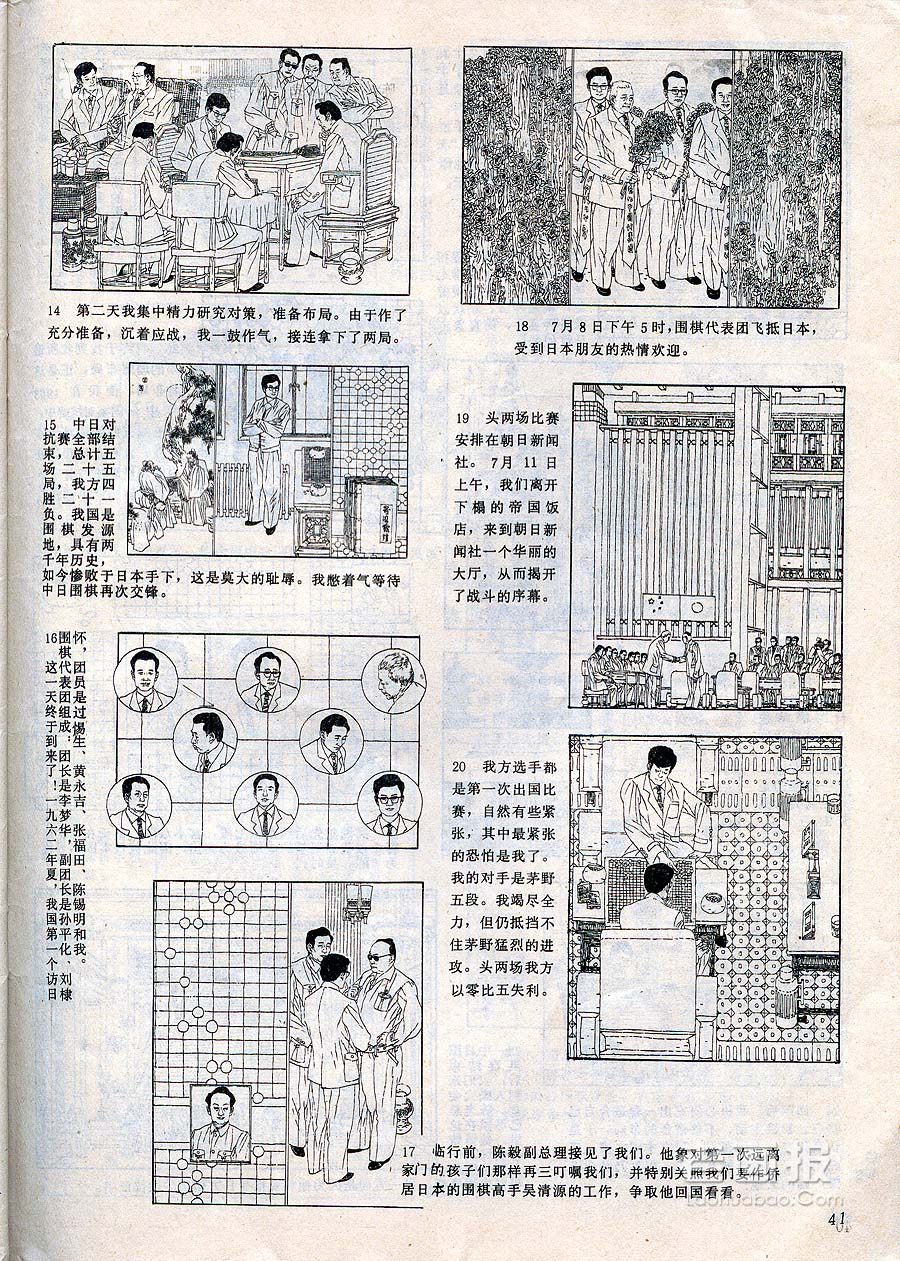 14 第二天我集中精力研究对策，准备布局。由于作了
充分准备，沉着应战，我一鼓作气，接连拿下了两局。
15 中日对
抗赛全部结
束，总计五
场二十五
局，我方四
胜二十一
负。我国是
围棋发源
地，具有两
千年历史，
如今惨败于日本手下，这是莫大的耻辱。我憋着气等待
中日围棋再次交锋。
16 这一天终于到来了！一九六二年夏，我国第一个访日
围棋代表团组成：团长是李梦华，副团长是孙平化、刘棣
怀，团员是过惕生、黄永吉、张福田、陈锡明和我。
17 临行前，陈毅副总理接见了我们。他象对第一次远离
家门的孩子们那样再三叮嘱我们，并特别关照我们要作侨
居日本的围棋高手吴清源的工作，争取他回国看看。
18 7月8日下午5时，围棋代表团飞抵日本，
受到日本朋友的热情欢迎。
19 头两场比赛
安排在朝日新闻
社。7月11日
上午，我们离开
下榻的帝国饭
店，来到朝日新
闻社一个华丽的
大厅，从而揭开
了战斗的序幕。
20 我方选手都
是第一次出国比
赛，自然有些紧
张，其中最紧张
的恐怕是我了。
我的对手是茅野
五段。我竭尽全
力，但仍抵挡不
住茅野猛烈的进
攻。头两场我方
以零比五失利。
老画报
laohuabao.Com
41